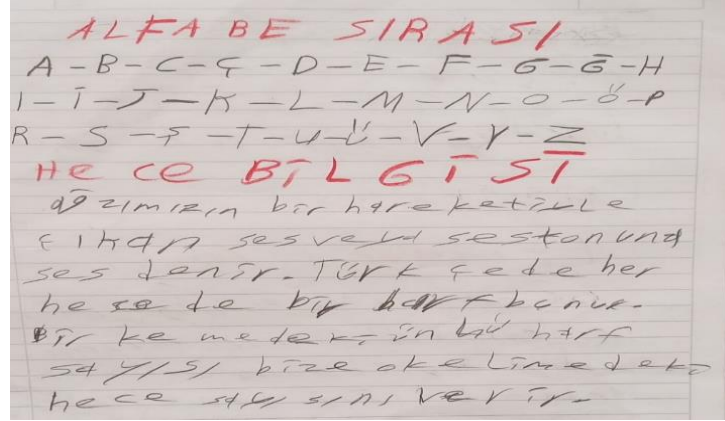 ALFABE SIRASI
A-B-C-Ç-D-E-F-G-Ğ-H
I-İ-J-K-L-M-N-O-Ö-P
R-S-Ş-T-U-Ü-V-Y-Z
HeCe BİLGİSİ
ağzımızın bir hareketiyle
çıkan ses veya seston una
ses denir. Türkçede her
hecede bir harf
Bir ke medeki ünlü harf
sayısı bize o kelimedeki
hece sayısını verir.